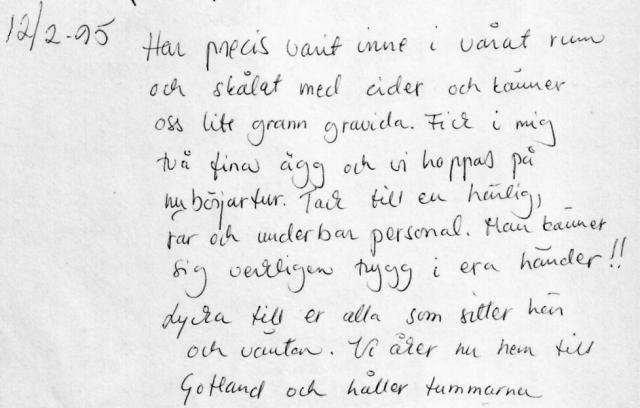 12/2-95
Har precis varit inne i vårat rum
och skålat med cider och känner
oss lite grann gravida. Fick i mig
två fina ägg och vi hoppas på
nybörjartur. Tack till en härlig,
rar och underbar personal. Man känner
sig verkligen trygg i era händer!!
Lycka till er alla som sitter här
och väntar. Vi åker nu hem till
Gotland och håller tummarna